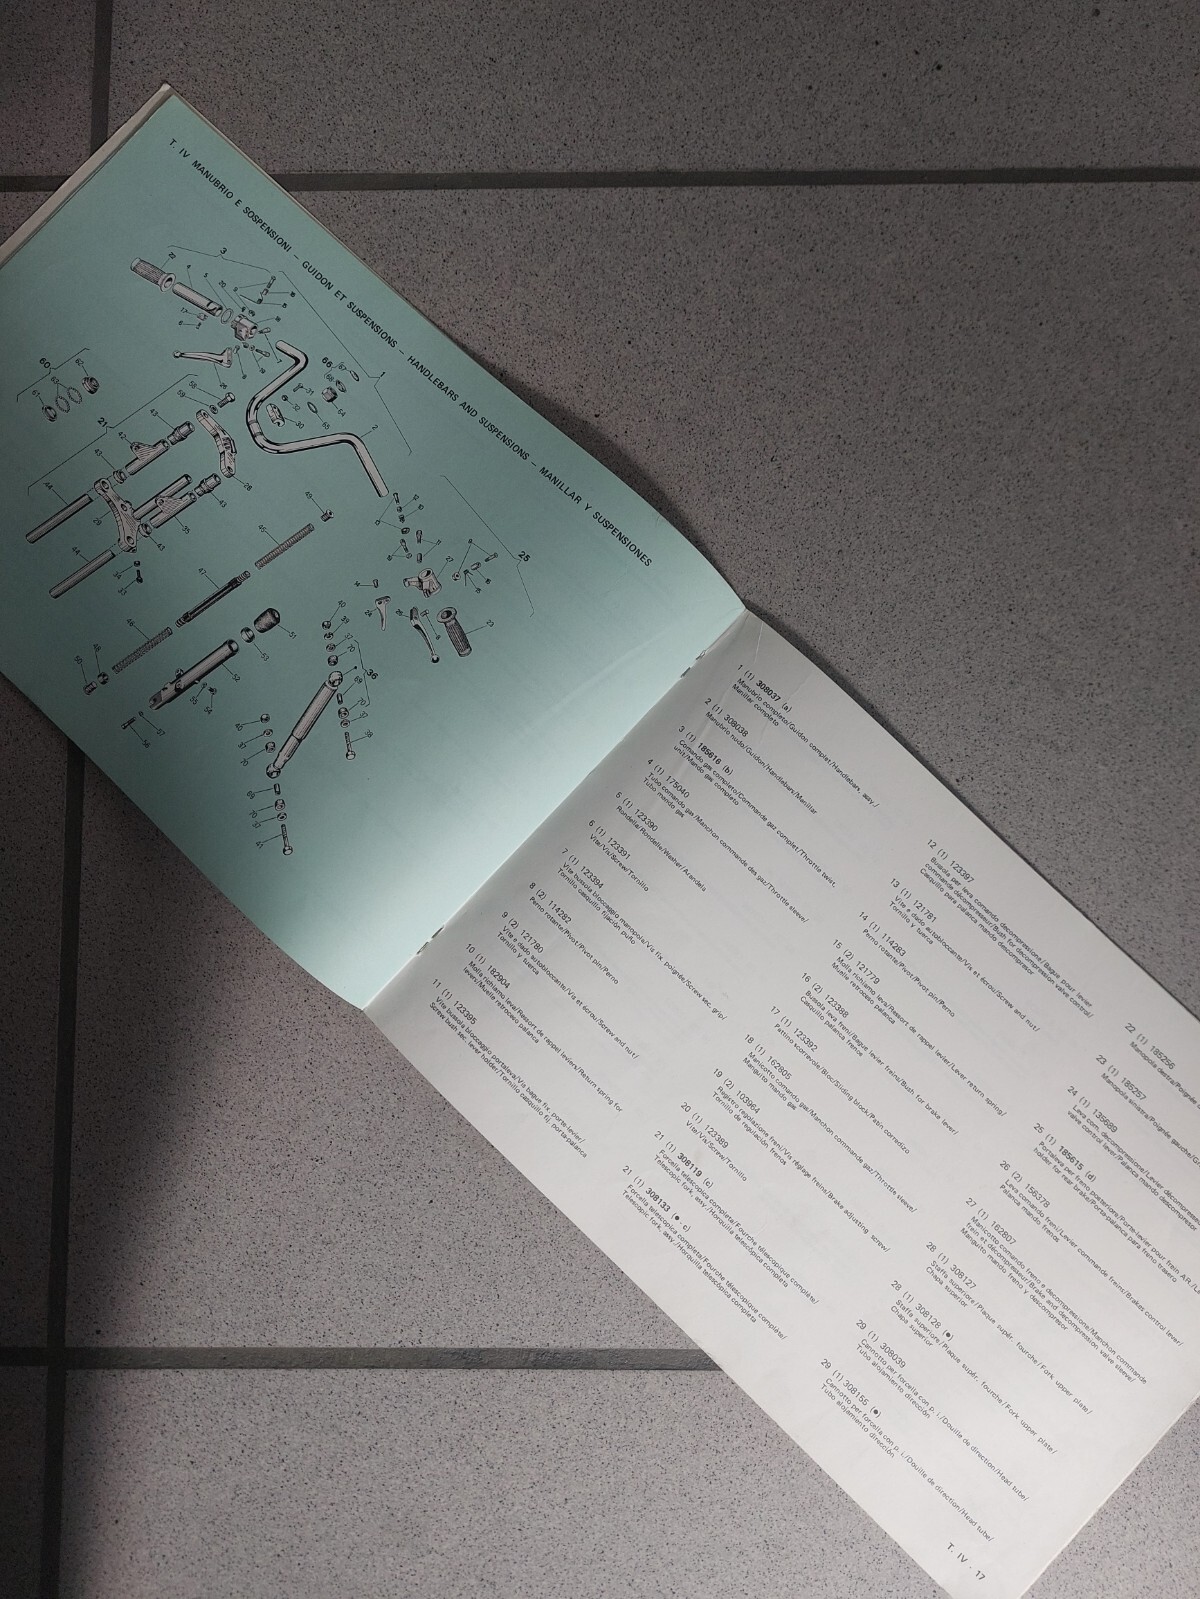 T. IV MANUBRIO E SOSPENSIONI — GUIDON ET SUSPENSIONS — HANDLEBARS AND SUSPENSIONS — MANILLAR Y SUSPENSIONES
1 (1) 308037 (a)
Manubrio completo/Guidon complet/Handlebars, assy./
Manillar completo
2 (1) 308038
Manubrio nudo/Guidon/Handlebars/Manillar
3 (1) 185616 (b)
Comando gas completo/Commande gaz complet/Throttle twist,
unit/Mando gas completo
4 (1) 175040
Tubo comando gas/Manchon commande des gaz/Throttle sleeve/
Tubo mando gas
5 (1) 123390
Rondella/Rondelle/Washer/Arandela
6 (1) 123391
Vite/Vis/Screw/Tornillo
7 (1) 123394
Vite bussola bloccaggio manopola/Vis fix. poignée/Screw sec. grip/
Tornillo casquillo fijación puño
8 (2) 114282
Perno rotante/Pivot/Pivot pin/Perno
9 (2) 121780
Vite e dado autobloccante/Vis et écrou/Screw and nut/
Tornillo y tuerca
10 (1) 182904
Molla richiamo leva/Ressort de rappel leviers/Return spring for
levers/Muelle retroceso palanca
11 (1) 123395
Vite bussola bloccaggio portaleva/Vis bague fix. porte-levier/
Screw bush sec. lever holder/Tornillo casquillo fij. porta-palanca
12 (1) 123397
Bussola per leva comando decompressione/Bague pour levier
commande décompresseur/Bush for decompression valve control/
Casquillo para palanca mando descompresor
13 (1) 121781
Vite e dado autobloccante/Vis et écrou/Screw and nut/
Tornillo y tuerca
14 (1) 114283
Perno rotante/Pivot/Pivot pin/Perno
15 (2) 121779
Molla richiamo leva/Ressort de rappel levier/Lever return spring/
Muelle retroceso palanca
16 (2) 123388
Bussola leva freni/Bague levier freins/Bush for brake lever/
Casquillo palanca frenos
17 (1) 123392
Pattino scorrevole/Bloc/Sliding block/Patin corredizo
18 (1) 162805
Manicotto comando gas/Manchon commande gaz/Throttle sleeve/
Manguito mando gas
19 (2) 103964
Registro regolazione freni/Vis réglage freins/Brake adjusting screw/
Tornillo de regulación frenos
20 (2) 123389
Vite/Vis/Screw/Tornillo
21 (1) 308119 (c)
Forcella telescopica completa/Fourche télescopique complète/
Telescopic fork, assy./Horquilla telescópica completa
21 (1) 308133 (● - c)
Forcella telescopica completa/Fourche télescopique complète/
Telescopic fork, assy./Horquilla telescópica completa
22 (1) 185256
Manopola destra/Poignée
23 (1) 185257
Manopola sinistra/Poignée gauche/
24 (1) 135689
Leva com. decompressione/Levier décompresseur/
valve control lever/Palanca mando descompresor
25 (1) 185615 (d)
Portaleva per freno posteriore/Porte-levier pour frein AR./
holder for rear brake/Porta-palanca para freno trasero
26 (2) 156378
Leva comando freni/Levier commande freins/Brakes control lever/
Palanca mando frenos
27 (1) 162807
Manicotto comando freno e decompressione/Manchon commande
frein et décompresseur/Brake and decompression valve sleeve/
Manguito mando freno y descompresor
28 (1) 308127
Staffa superiore/Plaque supér. fourche/Fork upper plate/
Chapa superior
28 (1) 308128 (●)
Staffa superiore/Plaque supér. fourche/Fork upper plate/
Chapa superior
29 (1) 308039
Cannotto per forcella con p. i./Douille de direction/Head tube/
Tubo alojamiento dirección
29 (1) 308155 (●)
Cannotto per forcella con p. i./Douille de direction/Head tube/
Tubo alojamiento dirección
T. IV - 17